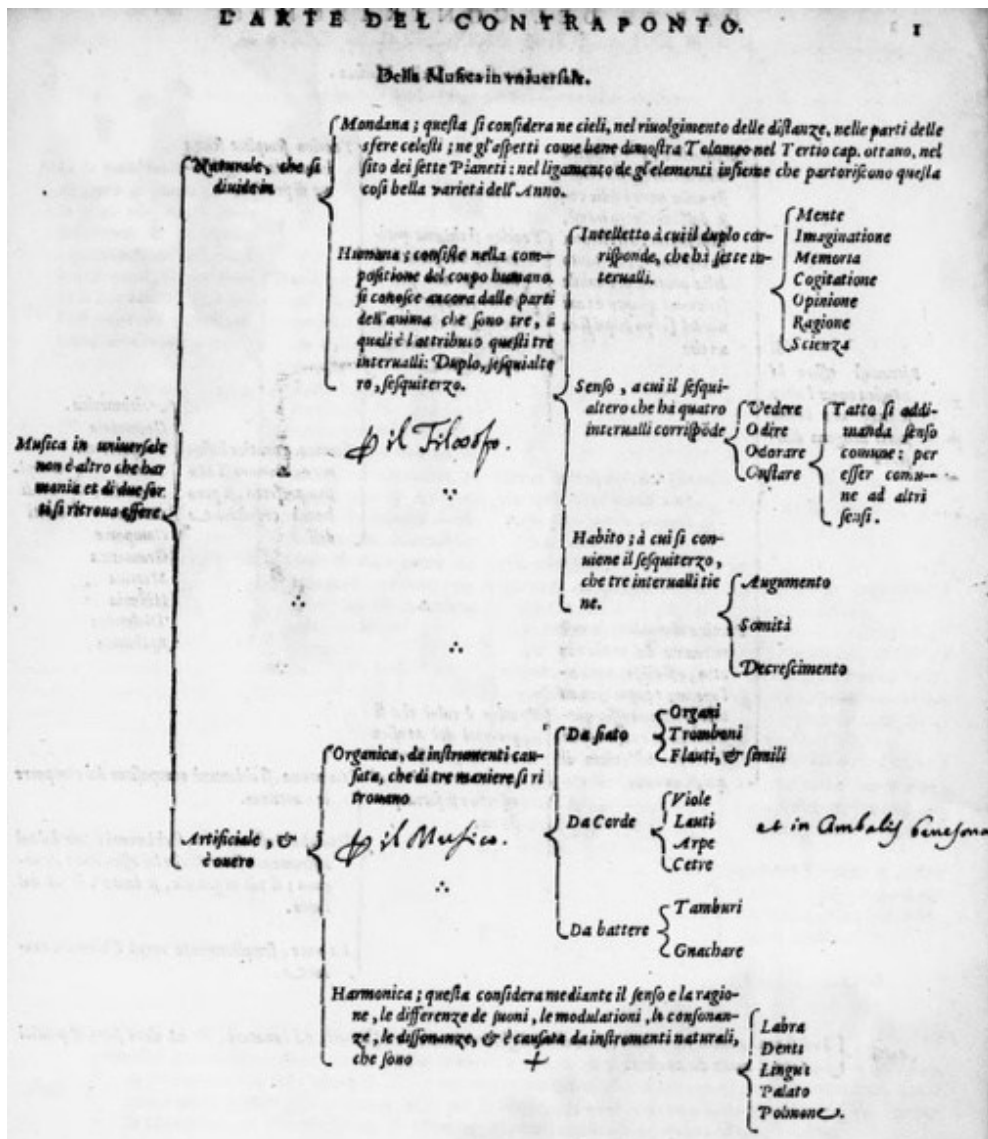 L'ARTE DEL CONTRAPONTO. 1
Della Musica in vniuersale.
Mondana ; questa si considera ne cieli, nel riuolgimento delle distanze, nelle parti delle
sfere celesti ; ne gl'aspetti come bene dimostra Tolomeo nel Tertio cap. ottauo, nel
sito dei sette Pianeti : nel ligamento de gl'elementi insieme che partoriscono questa
cosi bella varietà dell'Anno.
Naturale, che si
diuide in
Humana ; consiste nella com-
positione del corpo humano.
si conosce ancora dalle parti
dell'anima che sono tre, à
quali è l'attributo questi tre
interualli: Duplo, sesquialte
ro, sesquiterzo.
Intelletto à cui il duplo cor-
risponde, che hà sette in-
terualli.
Mente
Imaginatione
Memoria
Cogitatione
Opinione
Ragione
Scienza
Senso, a cui il sesqui-
altero che hà quatro
interualli corrispõde
Vedere
Odire
Odorare
Gustare
Tatto si addi-
manda senso
comune : per
esser comu-
ne ad altri
sensi.
Musica in uniuersale
non è altro che har
monia et di due sor
ti si ritroua essere.
il Filosofo.
Habito ; à cui si con-
uiene il sesquiterzo,
che tre interualli tie
ne.
Augumento
Somità
Decrescimento
Artificiale, &
è ouero
Organica, da instrumenti cau-
sata, che di tre maniere si ri
trouano
il Musico.
Da fiato
Organi
Tromboni
Flauti, & simili
Da Corde
Viole
Lauti
Arpe
Cetre
et in
Da battere
Tamburi
Gnachare
Harmonica ; questa considera mediante il senso e la ragio-
ne, le differenze de suoni, le modulationi, le consonan-
ze, le dissonanze, & è causata da instromenti naturali,
che sono
Labra
Denti
Lingua
Palato
Polmone.